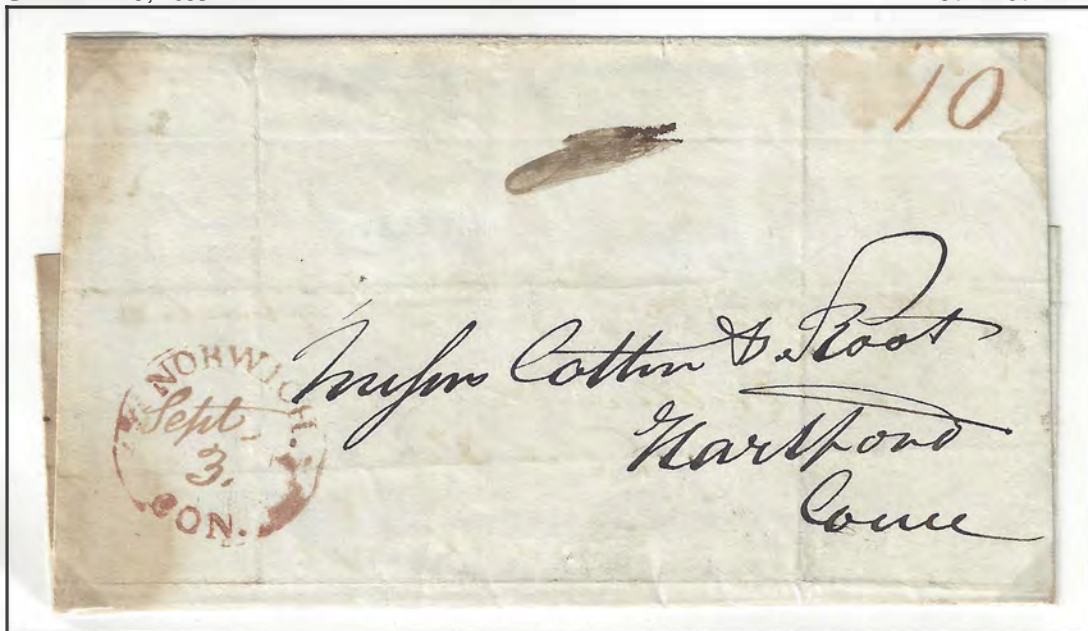 10
NORWICH.
Sept
3.
CON.
Messrs Cotton & Root
Hartford
Conn